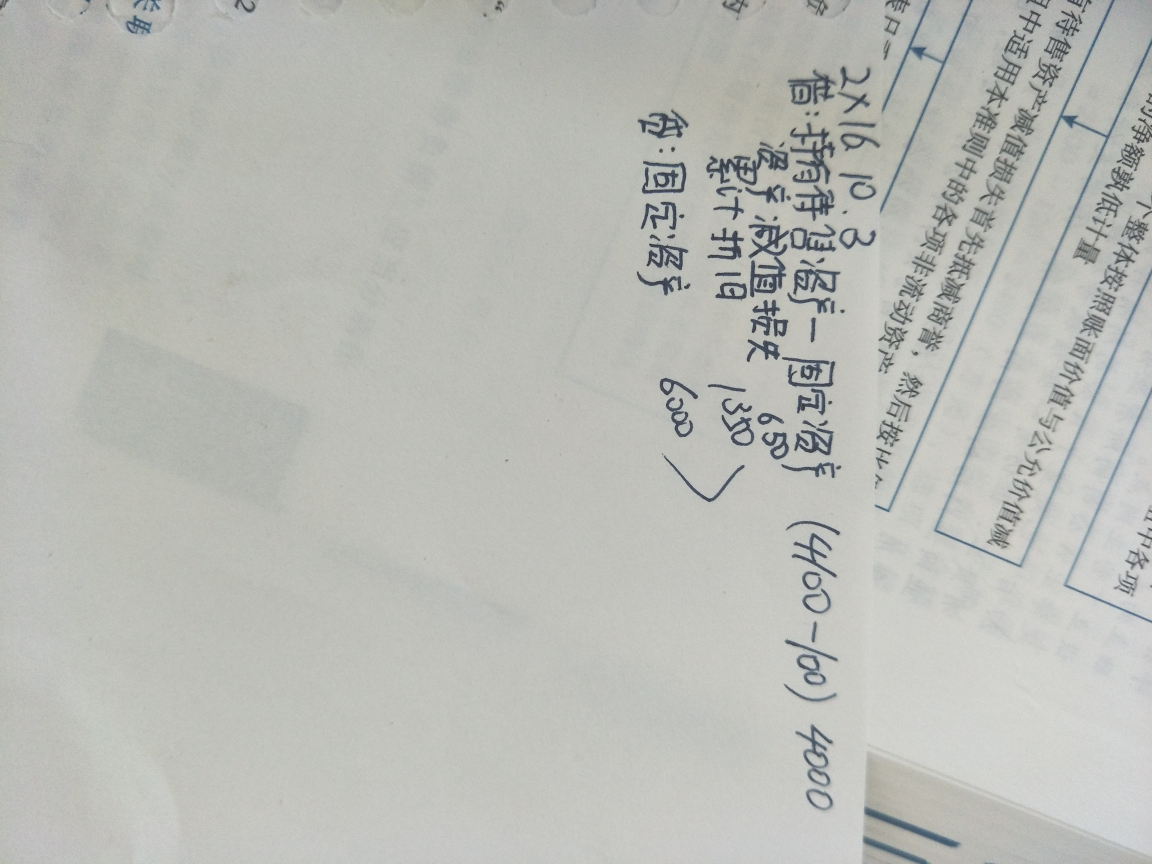 2X16 10.8
借：持有待售资产一固定资产 (4100-100) 4000
资产减值损失 650
累计折旧 1350
贷：固定资产 6000
有待售资产减值损失首先抵减商誉，然后按比
中适用本准则中的各项非流动资产
个整体按照账面价值与公允价值减
的净额孰低计量
中各项
2